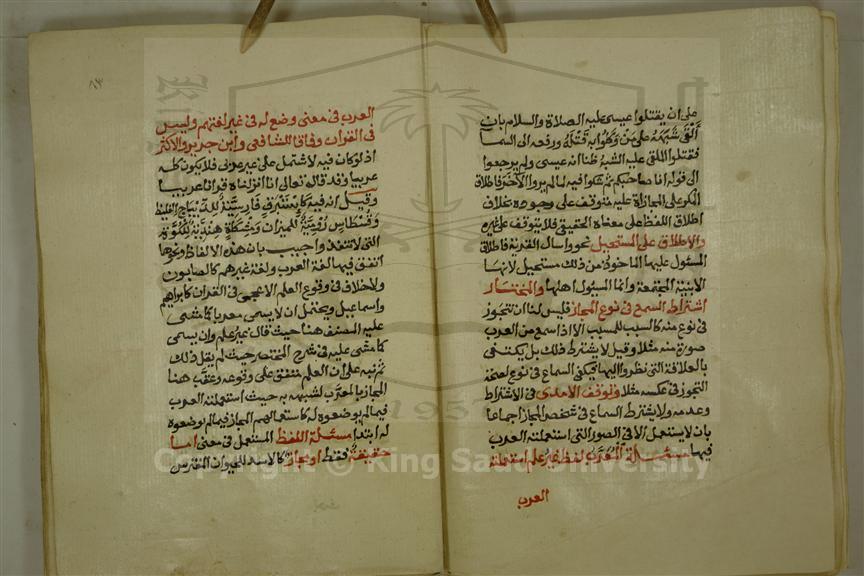 على ان يقتلوا عيسى عليه الصلاة والسلام بان
ألقى شبهه على من وكلوا به قتله ورفعه الى السما
فقتلوا الملقى عليه الشبه ظنا انه عيسى ولم يرجعوا
الى قوله انا صاحبكم ثم شكوا فيه لما لم يروا الآخر فاطلاق
المكر على المجازاة عليه متوقف على وجوده بخلاف
اطلاق اللفظ على معناه الحقيقي فلا يتوقف على غيره
والاطلاق على المستحيل نحو واسال القرية فاطلاق
المسئول عليها الماخوذ من ذلك مستحيل لانها
الابنية المجتمعة وانما المسئول اهلها والمختار
اشتراط السمع في نوع المجاز فليس لنا ان نتجوز
في نوع منه كالسبب للمسبب الا اذا سمع من العرب
صورة منه مثلا وقيل لا يشترط ذلك بل يكتفى
بالعلاقة التي نظروا اليها فيكفي السماع في نوع لصحة
التجوز في عكسه مثلا وتوقف الآمدي في الاشتراط
وعدمه ولا يشترط السماع في شخص المجاز اجماعا
بان لا يستعمل الا في الصور التي استعملته العرب
فيها مسئلة المعرب لفظ غير علم استعملته
العرب
٨٣
العرب في معنى وضع له في غير لغتهم وليس
في القران وفاقا للشافعي وابن جرير والاكثر
اذ لو كان فيه لاشتمل على غير عربي فلا يكون كله
عربيا وقد قال تعالى انا انزلناه قرانا عربيا
وقيل انه فيه كاستبرق فارسية للديباج الغليظ
وقسطاس رومية للميزان ومشكاة هندية للكوة
التي لا تنفذ واجيب بان هذه الالفاظ ونحوها
اتفق فيها لغة العرب ولغة غيرهم كالصابون
ولا خلاف في وقوع العلم الاعجمي في القران كابراهيم
واسماعيل ويحتمل ان لا يسمى معربا كما مشى
عليه المصنف هنا حيث قال غير علم وان يسمى
كما مشى عليه في شرح المختصر حيث لم يقل ذلك
ثم نبه على ان العلم متفق على وقوعه وعقب هنا
المجاز بالمعرب لشبهه به حيث استعملته العرب
فيما لم يوضعوه له كاستعمالهم المجاز فيما لم يوضعوه
له ابتدا مسئلة اللفظ المستعمل في معنى اما
حقيقة فقط او مجاز كالاسد للحيوان المفترس
Copyright © King Saud University
1957